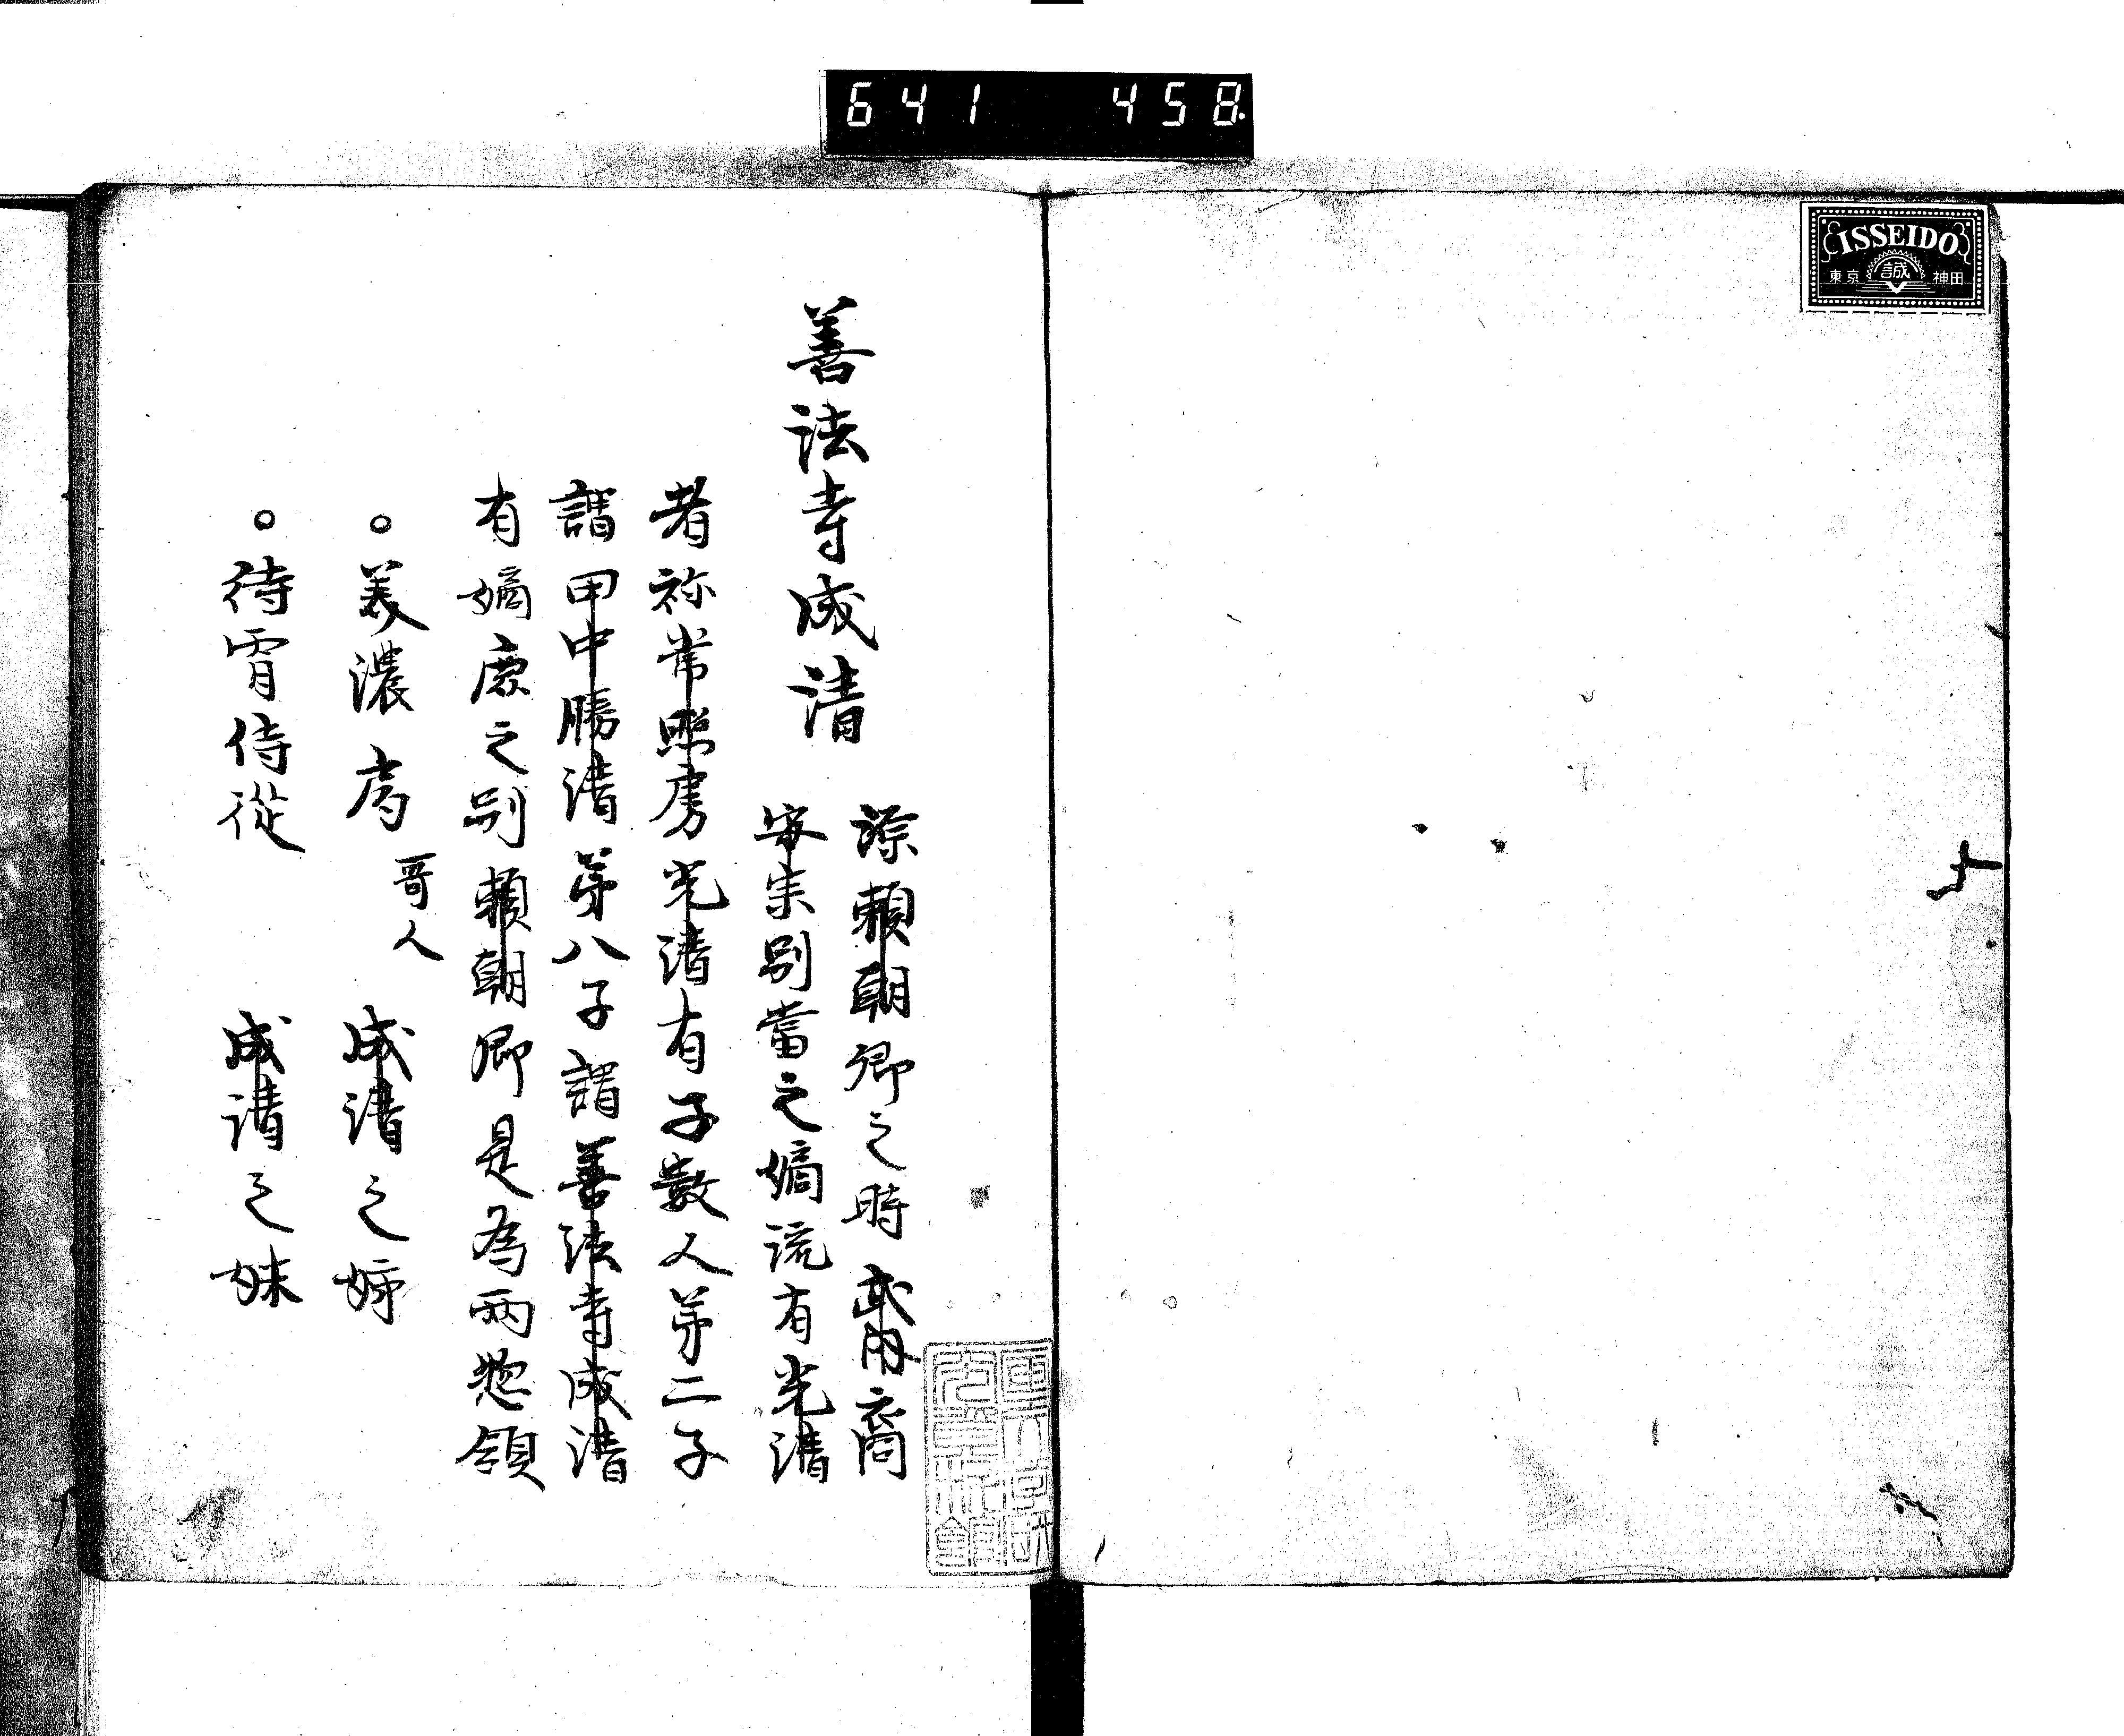 641 458
ISSEIDO
東京 誠 神田
善法寺成清
源頼朝卿之時武内裔
安宗別當之嫡流有光清
者祢常照房光清有子數人第二子
謂甲中勝清第八子謂善法寺成清
有嫡庶之別頼朝卿是為両惣領
。美濃局 哥人 成清之姉
。待宵侍従 成清之妹